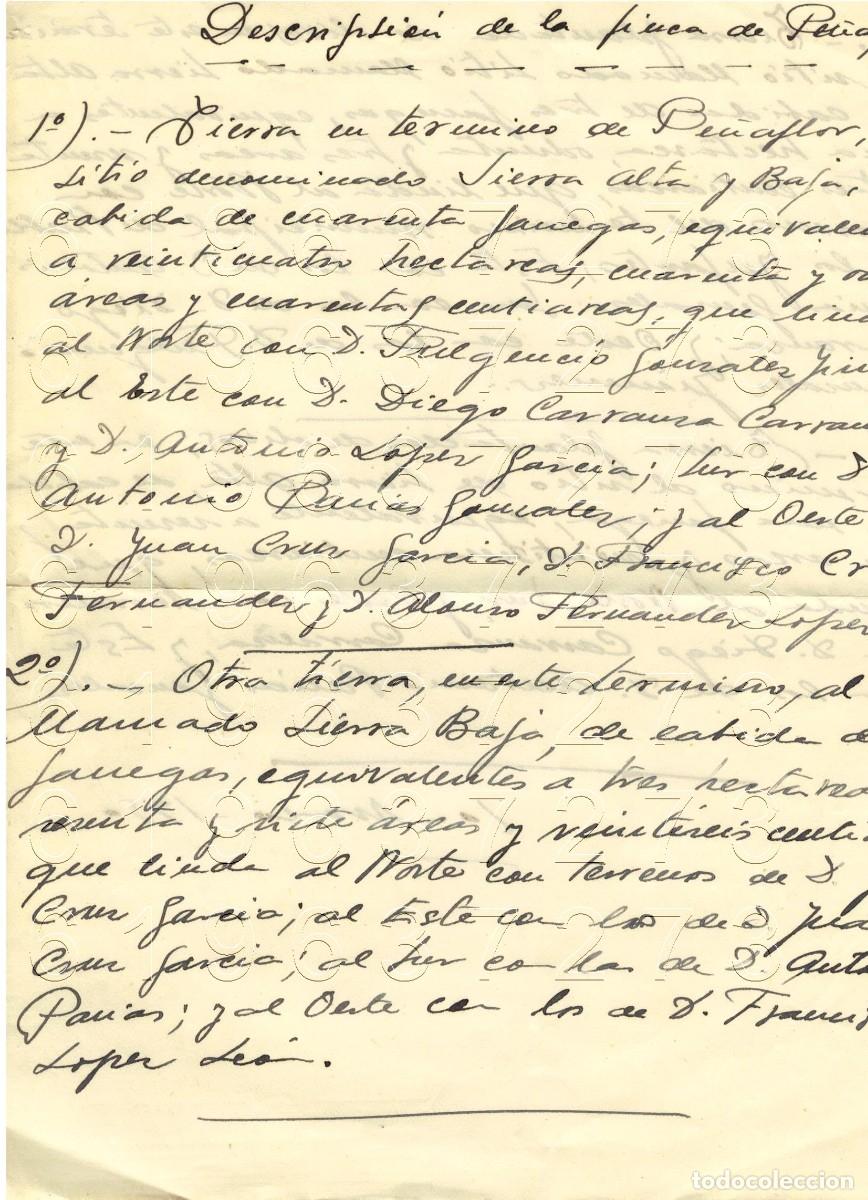 Descripsión de la finca de Peña
1º).- Tierra en termino de Peñaflor,
sitio denominado Sierra Alta y Baja,
cabida de cuarenta fanegas, equivalen
a veinticuatro hectareas, cuarenta y o
áreas y cuarentas centiareas, que lin
al Norte con D. Fulgencio Gonzalez
al Este con D. Diego Carranza Carran
y D. Antonio Lopez Garcia; Sur con D
Antonio Parias Gonzalez; y al Oeste
D. Juan Cruz Garcia, D. Francisco Cr
Fernandez y D. Alonso Fernandez Lopez
2º).- Otra tierra, en este termino, al
llamado Sierra Baja, de cabida de
fanegas, equivalentes a tres hectarea
senta y siete áreas y veintiseis centi
que linda al Norte con terrenos de D
Cruz Garcia; al Este con los de D. Jua
Cruz Garcia; al Sur con las de D. Anto
Parias; y al Oeste con los de D. Franci
Lopez León.
todocoleccion